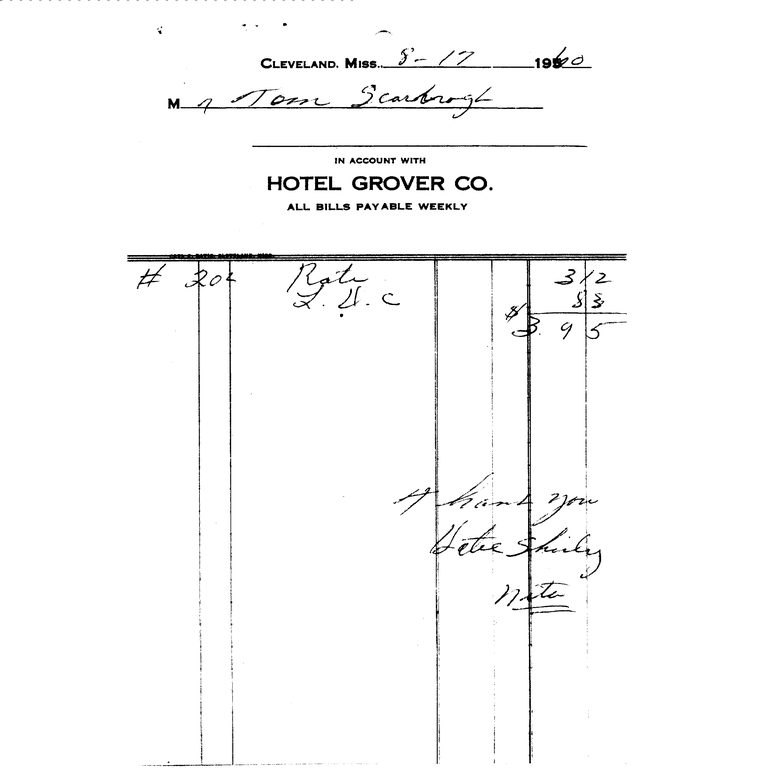 CLEVELAND, MISS., 8-17 1960
Mr Tom Scarbrough
IN ACCOUNT WITH
HOTEL GROVER CO.
ALL BILLS PAYABLE WEEKLY
# 202 Rate 3 12
L. D. C 83
$3. 95
Thank you
Shirley
Nita